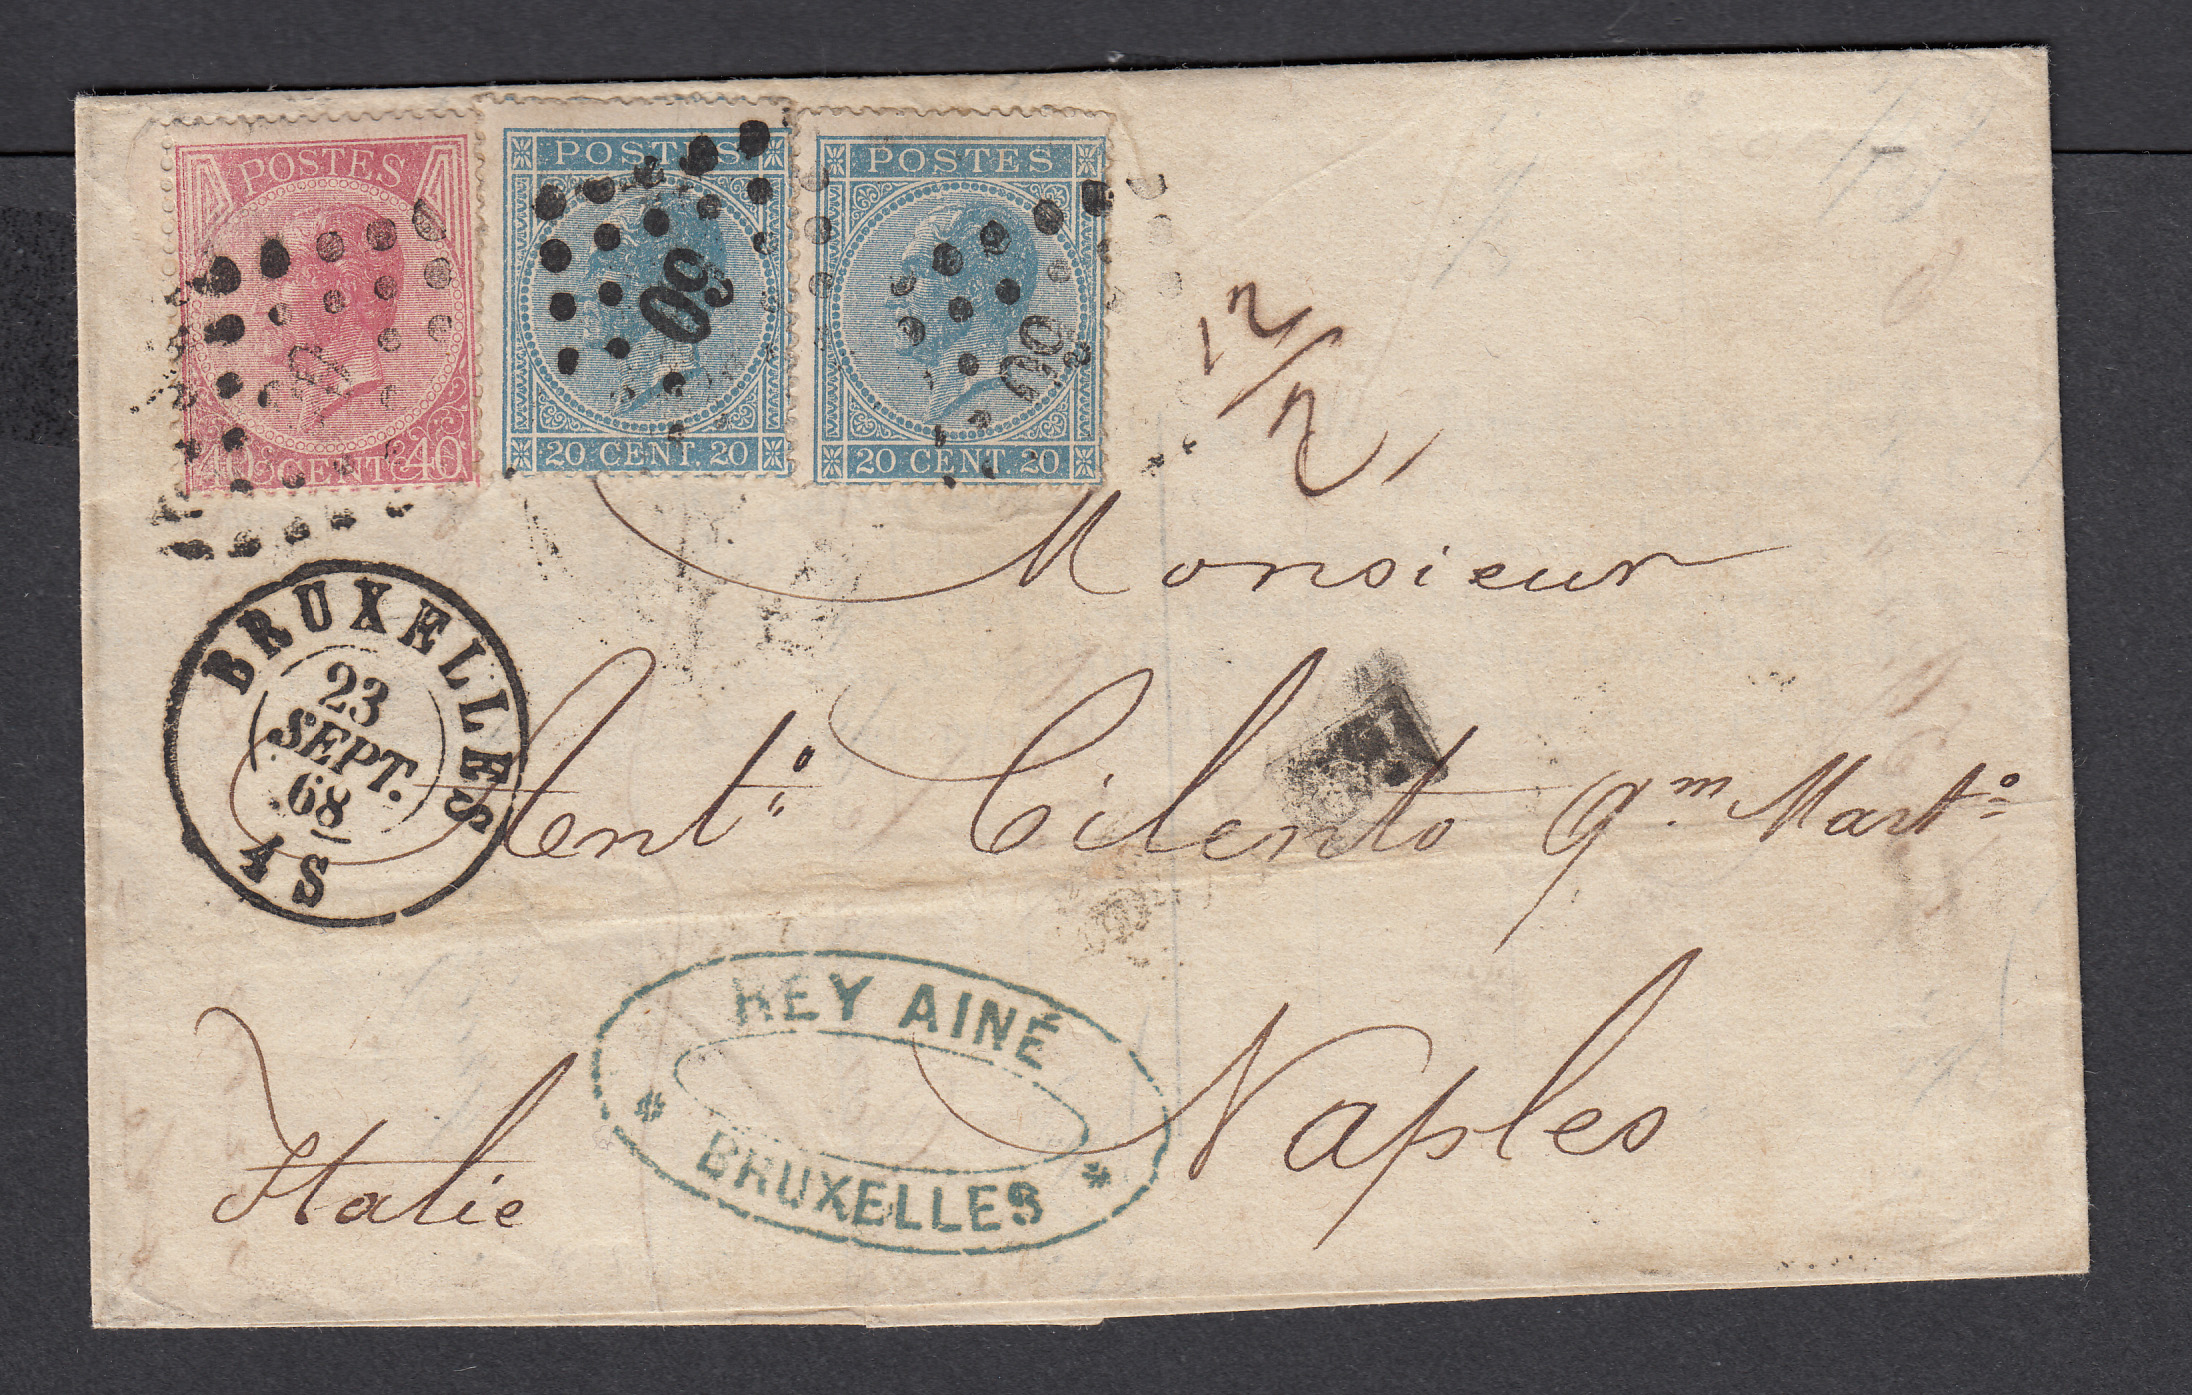 POSTES
40 CENT 40
POSTES
20 CENT. 20
60
POSTES
20 CENT. 20
12/2
Monsieur
BRUXELLES
23
SEPT.
68
4 S
Ant.º Cilento q.m Mart.º
Naples
Italie
REY AINÉ
BRUXELLES